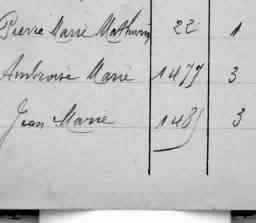 Pierre Marie Mathurin 22 1
Ambroise Marie 1477 3
Jean Marie 1485 3